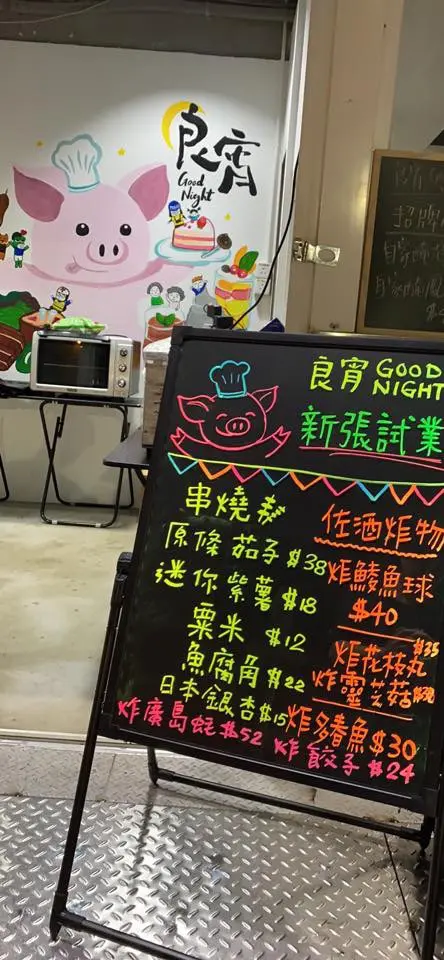 良宵
Good
Night
良宵 GOOD
NIGHT
新張試業
串燒類
原條茄子 $38
迷你紫薯 $18
粟米 $12
魚腐角 $22
日本銀杏 $15
佐酒炸物
炸鯪魚球
$40
炸花枝丸 $35
炸靈芝菇
炸多春魚 $30
炸廣島蚝 $52
炸餃子 $24
良宵
招牌
自家
自家